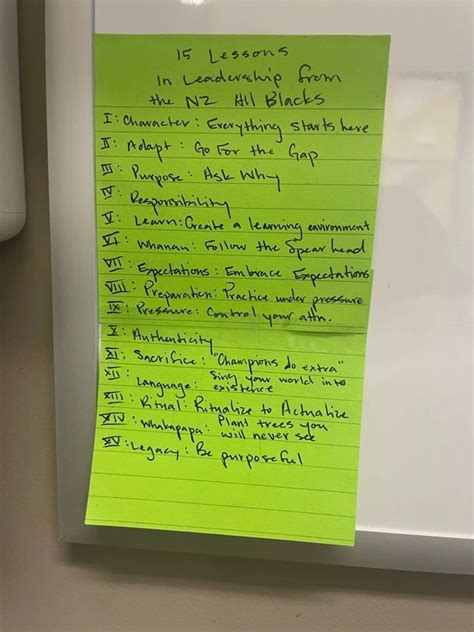 15 Lessons
In Leadership from
the NZ All Blacks
I: Character: Everything starts here
II: Adapt: Go For the Gap
III: Purpose: Ask Why
IV: Responsibility
V: Learn: Create a learning environment
VI: Whanau: Follow the Spear head
VII: Expectations: Embrace Expectations
VIII: Preparation: Practice under pressure
IX: Pressure: Control your attn.
X: Authenticity
XI: Sacrifice: "Champions do extra"
XII: Language: Sing your world into
existence
XIII: Ritual: Ritualize to Actualize
XIV: Whakapapa: Plant trees you
will never see
XV: Legacy: Be purposeful